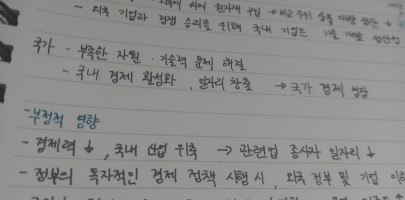 원자재 구입 → 비교 우위 상품 대량 생산 →
- 외국 기업과 경쟁 승리를 위해 국내 기업은 기술 개발 생산성
국가 - 부족한 자원·기술력 문제 해결
- 국내 경제 활성화, 일자리 창출 → 국가 경제 성장
-부정적 영향
- 경제력 ↓, 국내 산업 위축 → 관련업 종사자 일자리 ↓
- 정부의 독자적인 경제 정책 시행 시, 외국 정부 및 기업 이